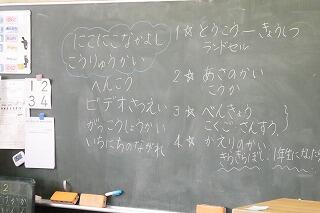 にこにこなかよし
こうりゅうかい
へんこう
ビデオさつえい
がっこうしょうかい
いちにちのながれ
1☆とうこうーきょうしつ
ランドセル
2☆あさのかい
こうか
3☆べんきょう
こくご さんすう
4☆かえりのかい
きらきらぼし 1年生になったら
12
34